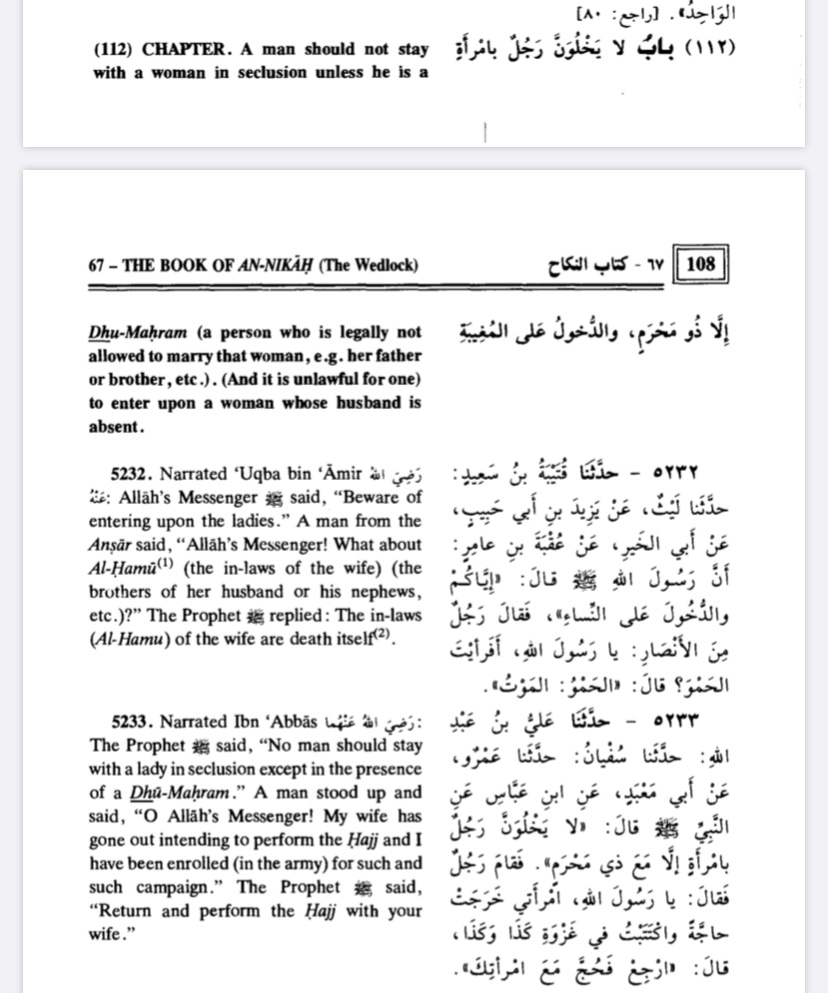 الوَاحِدُ». [راجع: ٨٠]
(112) CHAPTER. A man should not stay
with a woman in seclusion unless he is a
(١١٢) بابٌ لا يَخْلُوَنَّ رَجُلٌ بامْرأَةٍ
67 – THE BOOK OF AN-NIKĀḤ (The Wedlock)
٦٧ - كتاب النكاح
108
Dhu-Maḥram (a person who is legally not
allowed to marry that woman, e.g. her father
or brother, etc.). (And it is unlawful for one)
to enter upon a woman whose husband is
absent.
إلَّا ذُو مَحْرَمٍ، والدُّخولُ عَلى المُغِيبَةِ
5232. Narrated ‘Uqba bin ‘Āmir رَضِيَ اللهُ
عَنْهُ: Allāh’s Messenger ﷺ said, “Beware of
entering upon the ladies.” A man from the
Anṣār said, “Allāh’s Messenger! What about
Al-Ḥamū(1) (the in-laws of the wife) (the
brothers of her husband or his nephews,
etc.)?” The Prophet ﷺ replied: The in-laws
(Al-Hamu) of the wife are death itself(2).
٥٢٣٢ - حدَّثَنَا قُتَيْبَةُ بنُ سَعِيدٍ:
حدَّثَنا لَيْثٌ، عَنْ يَزِيدَ بنِ أبي حَبِيبٍ،
عَنْ أبي الخَيرِ، عَنْ عُقْبَةَ بنِ عامِرٍ:
أنَّ رَسُولَ اللهِ ﷺ قالَ: «إيَّاكُمْ
والدُّخُولَ عَلى النِّساءِ»، فَقالَ رَجُلٌ
مِنَ الأنْصَارِ: يا رَسُولَ اللهِ، أفَرأيْتَ
الحَمْوَ؟ قالَ: «الحَمْوُ: المَوْتُ».
5233. Narrated Ibn ‘Abbās رَضِيَ اللهُ عَنْهُما:
The Prophet ﷺ said, “No man should stay
with a lady in seclusion except in the presence
of a Dhū-Maḥram.” A man stood up and
said, “O Allāh’s Messenger! My wife has
gone out intending to perform the Ḥajj and I
have been enrolled (in the army) for such and
such campaign.” The Prophet ﷺ said,
“Return and perform the Ḥajj with your
wife.”
٥٢٣٣ - حدَّثَنَا عَليُّ بنُ عَبْدِ
اللهِ: حدَّثَنا سُفْيانُ: حدَّثَنا عَمْرٌو،
عَنْ أبي مَعْبَدٍ، عَنِ ابنِ عَبَّاسٍ عَنِ
النَّبِيِّ ﷺ قالَ: «لا يَخْلُوَنَّ رَجُلٌ
بامْرأَةٍ إلَّا مَعَ ذي مَحْرَمٍ». فَقامَ رَجُلٌ
فَقالَ: يا رَسُولَ اللهِ، امْرأتي خَرَجَتْ
حاجَّةً واكْتُتِبْتُ في غَزْوَةِ كَذَا وَكَذَا،
قالَ: «ارْجِعْ فَحُجَّ مَعَ امْرأتِكَ».